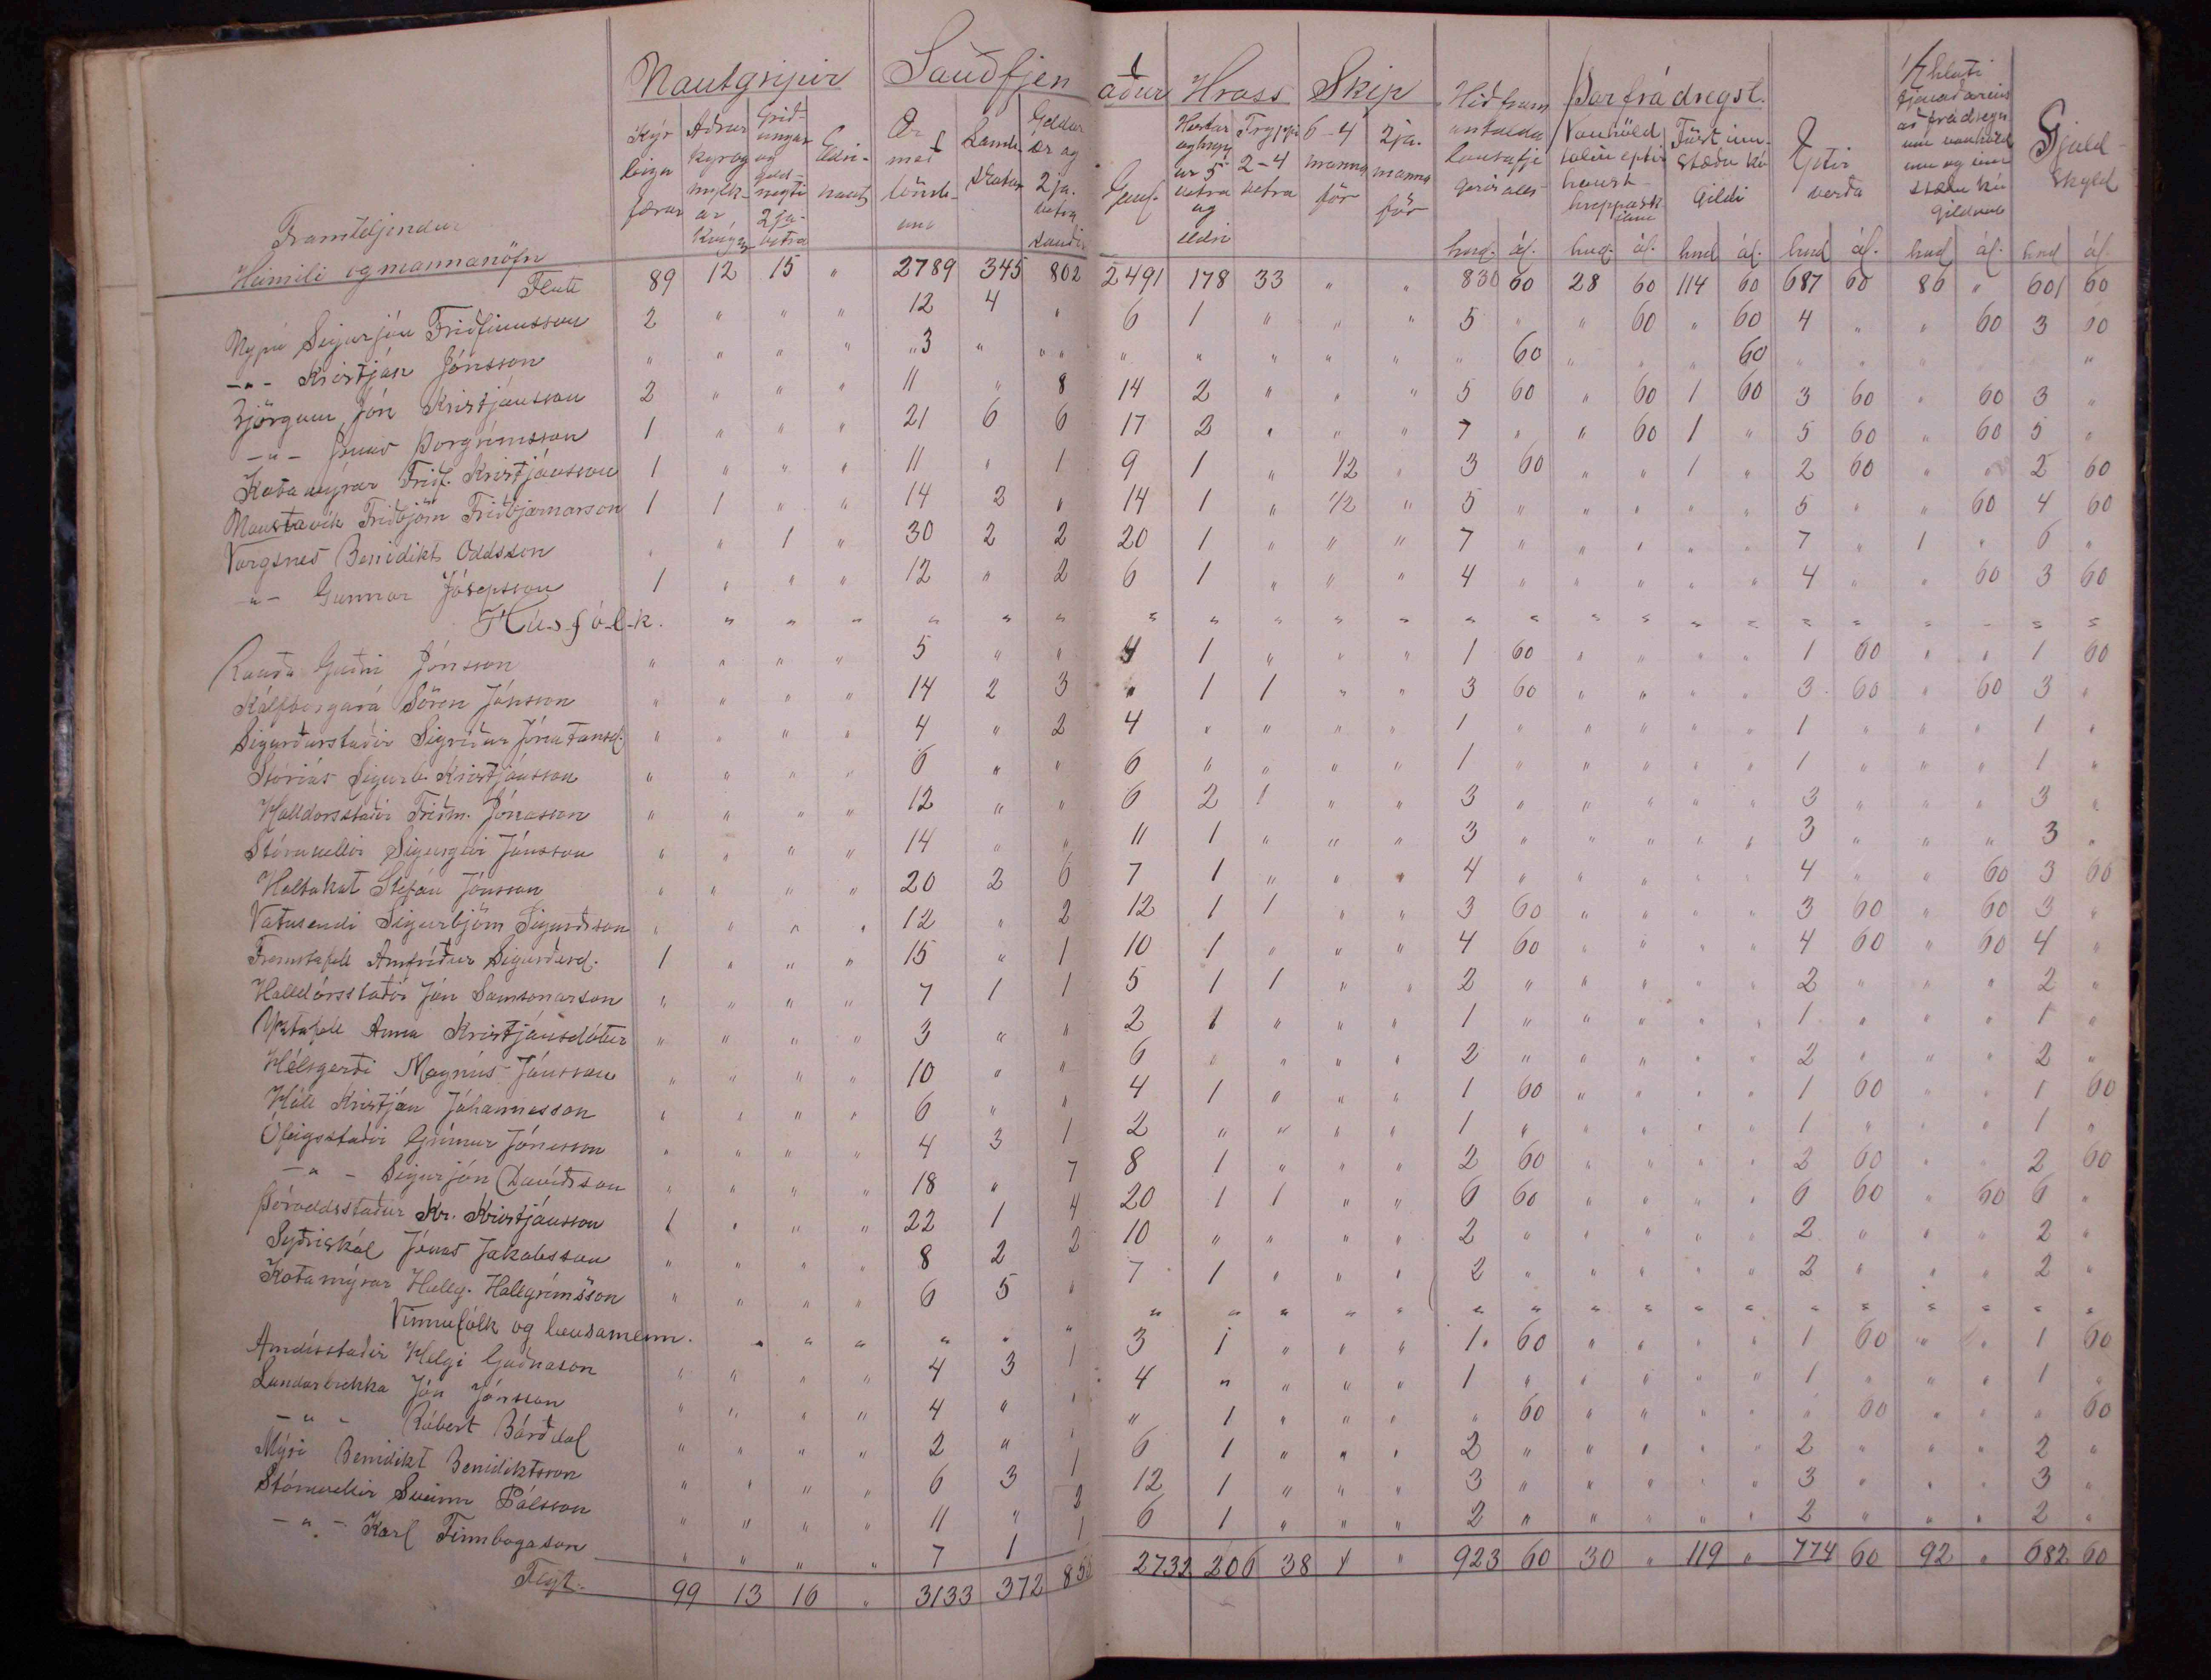 Nautgripir Sauðfjen aður Hross Skip Þar frá dregst.
Framteljendur
Heimili og mannanöfn
Kýr leigufærar | Aðrar kyr og mylkar kvígur | Griðungar og geldneyti 2ja vetra | Eldri naut | Ær með lömbum | Lambsgotur | Geldar ær og 2ja vetra sauðir | Geml. | Hestar og hryssur 5 vetra og eldri | Tryppi 2-4 vetra | 6-4 manna för | 2ja manna för | Hið fram antalda lausafje gerir alls | Vanhöld talin eptir haust-hreppaskilum | Fúst innstæðu kúgildi | Eptir verða | Gjaldskyld
hnd. ál. hnd. ál. hnd ál. hnd ál. hnd ál. hnd ál.
Flutt 89 12 15 " 2789 345 802 2491 178 33 " " 830 60 28 60 114 60 687 60 86 " 601 60
Nýpá Sigurjón Friðfinnsson 2 " " " 12 4 " 6 1 " " " 5 " " 60 " 60 4 " " 60 3 60
-"- Kristján Jónsson " " " " 3 " " " " " " " " 60 " " " 60 " " " " " "
Björgum Jón Kristjánsson 2 " " " 11 " 8 14 2 " " " 5 60 " 60 1 60 3 60 " 60 3 "
-"- Jónas Þorgrímsson 1 " " " 21 6 6 17 2 " " " 7 " " 60 1 " 5 60 " 60 5 "
Kotamýrar Friðf. Kristjánsson 1 " " " 11 " 1 9 1 " 1/2 " 3 60 " " 1 " 2 60 " " 2 60
Naustavík Friðbjörn Friðbjarnarson 1 1 " " 14 2 " 14 1 " 1/2 " 5 " " " " " 5 " " 60 4 60
Vargsnes Benidikt Oddsson " " 1 " 30 2 2 20 1 " " " 7 " " " " " 7 " 1 " 6 "
-"- Gunnar Jósepsson 1 " " " 12 " 2 6 1 " " " 4 " " " " " 4 " " 60 3 60
Húsfólk. " " " " " " " " " " " " " " " " " " " " " " "
Rauða Guðni Jónsson " " " " 5 " " 4 1 " " " 1 60 " " " " 1 60 " " 1 60
Kálfborgará Sören Jónsson " " " " 14 2 3 " 1 1 " " 3 60 " " " " 3 60 " 60 3 "
Sigurðarstaðir Sigríður Jónatansd. " " " " 4 " 2 4 " " " " 1 " " " " " 1 " " " 1 "
Stóriás Sigurb. Kristjánsson " " " " 6 " " 6 " " " " 1 " " " " " 1 " " " 1 "
Halldorsstaðir Friðm. Jónasson " " " " 12 " " 6 2 1 " " 3 " " " " " 3 " " " 3 "
Stóruvellir Sigurgeir Jónsson " " " " 14 " " 11 1 " " " 3 " " " " " 3 " " " 3 "
Holtakot Stefán Jónsson " " " " 20 2 6 7 1 " " " 4 " " " " " 4 " " 60 3 60
Vatnsendi Sigurbjörn Sigurðsson " " " " 12 " 2 12 1 1 " " 3 60 " " " " 3 60 " 60 3 "
Fremstafell Arnfríður Sigurðard. 1 " " " 15 " 1 10 1 " " " 4 60 " " " " 4 60 " 60 4 "
Halldórsstaðir Jón Samsonarson " " " " 7 1 1 5 1 1 " " 2 " " " " " 2 " " " 2 "
Yztafell Anna Kristjánsdóttir " " " " 3 " " 2 1 " " " 1 " " " " " 1 " " " 1 "
Hólsgerði Magnús Jónsson " " " " 10 " " 6 " " " " 2 " " " " " 2 " " " 2 "
Hóll Kristján Jóhannesson " " " " 6 " " 4 1 " " " 1 60 " " " " 1 60 " " 1 60
Ófeigsstaðir Grímur Jónsson " " " " 4 3 1 2 " " " " 1 " " " " " 1 " " " 1 "
-"- Sigurjón Davíðsson " " " " 18 " 7 8 1 " " " 2 60 " " " " 2 60 " " 2 60
Þóroddsstaður Kr. Kristjánsson 1 " " " 22 1 4 20 1 1 " " 6 60 " " " " 6 60 " 60 6 "
Syðriskál Jónas Jakobsson " " " " 8 2 2 10 " " " " 2 " " " " " 2 " " " 2 "
Kotamýrar Hallg. Hallgrímsson " " " " 6 5 " 7 1 " " " 2 " " " " " 2 " " " 2 "
Vinnufólk og lausamenn. " " " " " " " " " " " " " " " " " " " " " "
Arndísstaðir Helgi Guðnason " " " " 4 3 1 3 1 " " " 1 60 " " " " 1 60 " " 1 60
Lundarbrekka Jón Jónsson " " " " 4 " " 4 " " " " 1 " " " " " 1 " " " 1 "
-"- Róbert Bárðdal " " " " 2 " " " 1 " " " " 60 " " " " " 60 " " " 60
Mýri Benidikt Benidiktsson " " " " 6 3 1 6 1 " " " 2 " " " " " 2 " " " 2 "
Stóruvellir Sveinn Pálsson " " " " 11 " 2 12 1 " " " 3 " " " " " 3 " " " 3 "
-"- Karl Finnbogason " " " " 7 1 1 6 1 " " " 2 " " " " " 2 " " " 2 "
Flyt. 99 13 16 " 3133 372 2732 206 38 1 " 923 60 30 " 119 " 774 60 92 " 682 60